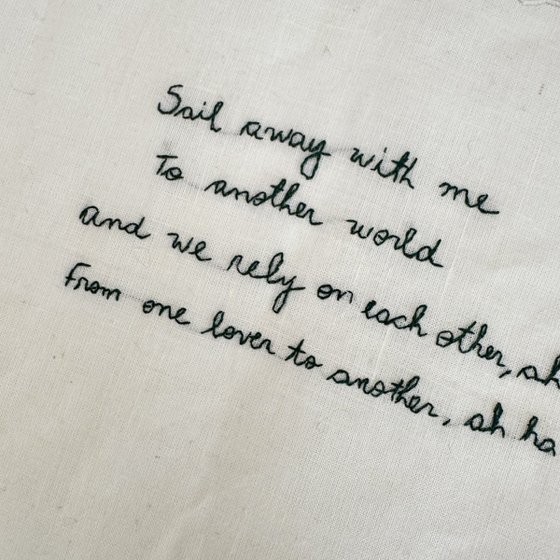 Sail away with me
To another world
and we rely on each other, ah
From one lover to another, ah ha